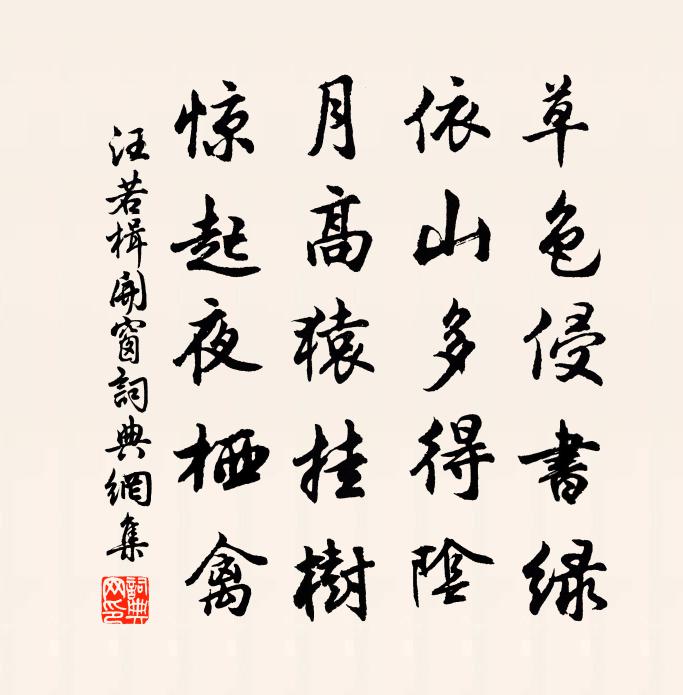 草色侵書緑
依山多得陰
月高猿挂樹
惊起夜栖禽
汪若楫開窗詞典網集
詞典网印